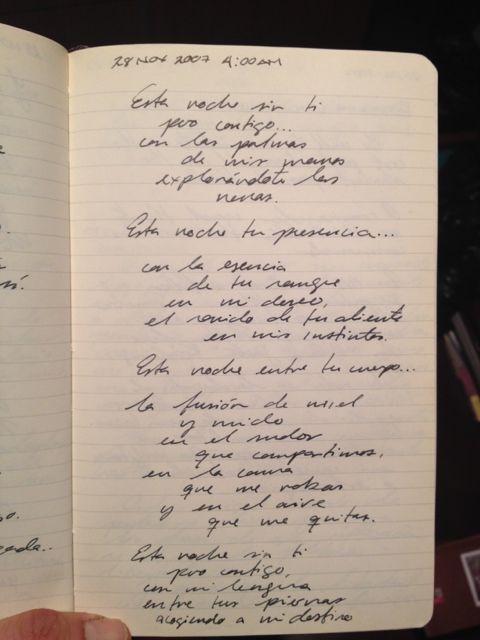 28 NOV 2007 4:00AM
Esta noche sin ti
pero contigo...
con las palmas
de mis manos
explorándote las
venas.
Esta noche tu presencia...
con la esencia
de tu sangre
en mi deseo,
el sonido de tu aliento
en mis instintos.
Esta noche entre tu cuerpo...
la fusión de miel
y
en el sudor
que compartimos,
en la cama
que me robas
y en el aire
que me quitas.
Esta noche sin ti
pero contigo,
con mi lengua
entre tus piernas
a mi destino